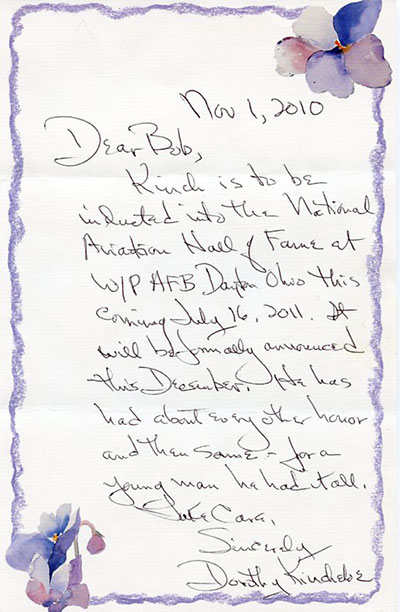 Nov 1, 2010
Dear Bob,
Kinch is to be
inducted into the National
Aviation Hall of Fame at
W/P AFB Dayton Ohio this
coming July 16, 2011. It
will be formally announced
this December. He has
had about every other honor
and then some - for a
young man he had it all.
Take Care,
Sincerely
Dorothy Kincheloe